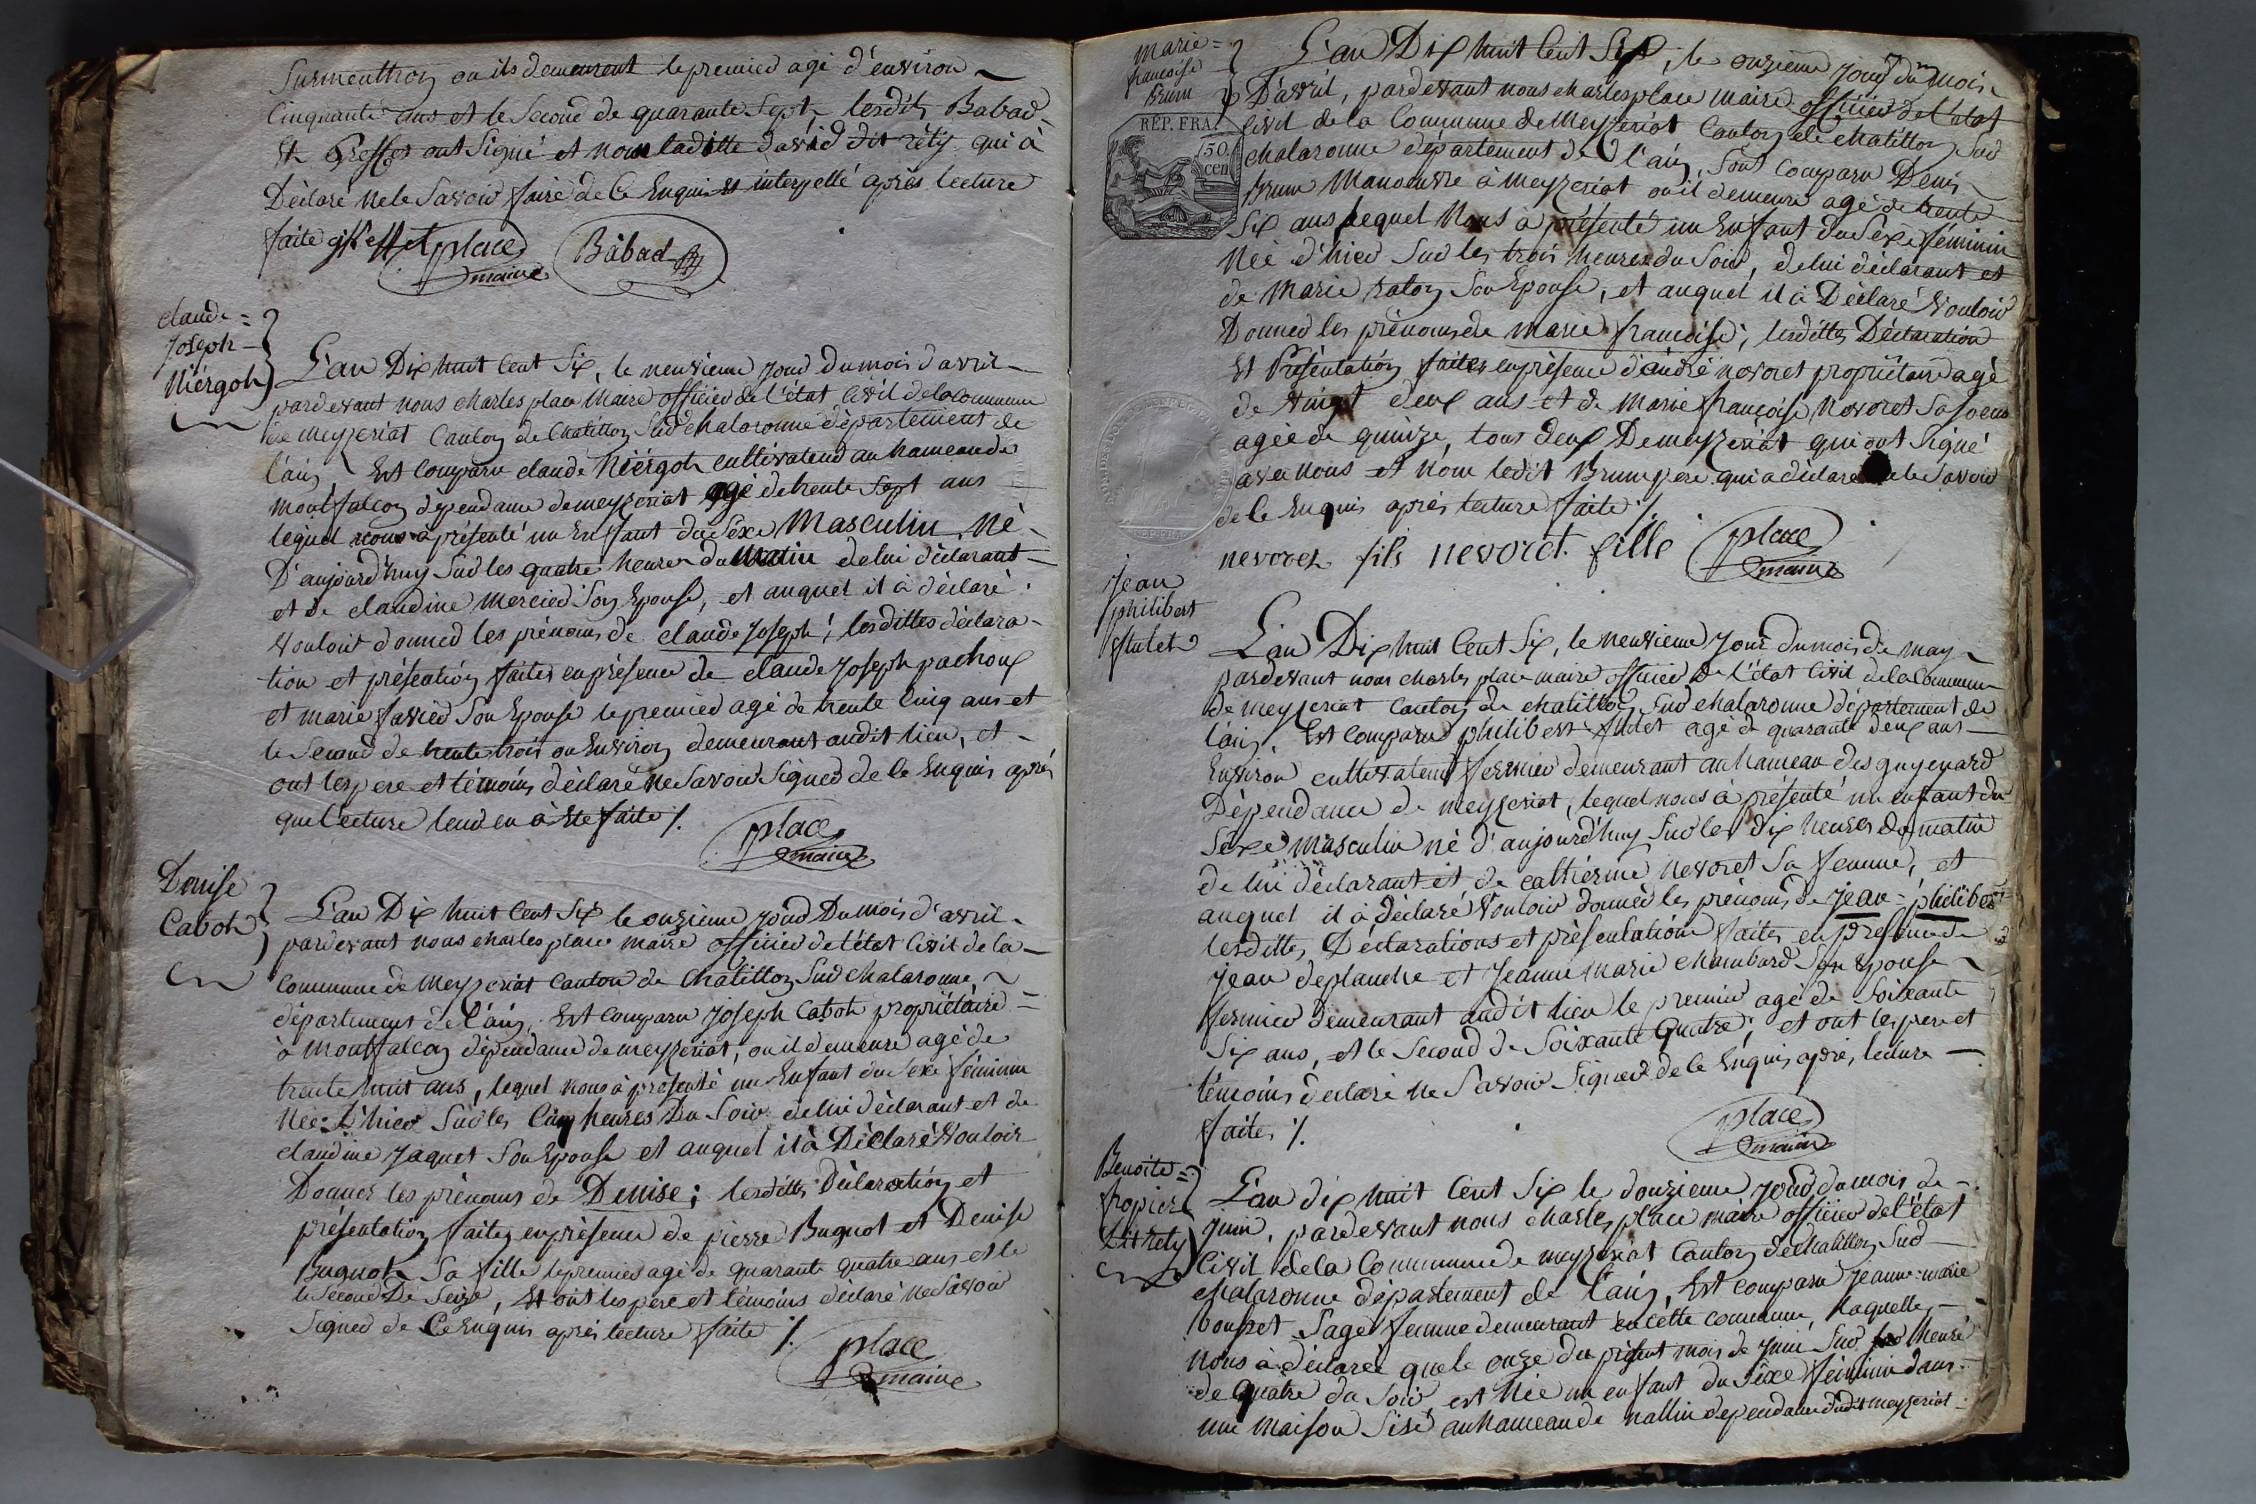 Surmenthon ou ils demeurent le premier agé d'environ
Cinquante ans et le second de quarante sept, lesdits Babad
Et ont Signé et non ladite david dit réty qui à
Déclaré ne le Savoir faire de Ce Enquis et interpellé après lecture
faite
place maire
Bâbad
claude=
Joseph
Niérgoh
L'an Dix huit Cent Six, le neuvieme jour du mois d'avril
pardevant nous charles place Maire officier de l'état Civil de la commune
de meyzeriat Canton de Chatillon Sur chalaronne département de
l'ain Est Comparu claude Niérgoh cultivateur au hameau de
montfalcon dépendance de meyzeriat agé de trente Sept ans
lequel nous à présenté un Enfant du Séxe Masculin, Né
D'aujourd'huy Sur les quatre heures du Matin de lui déclarant
et de claudine Mercier Son Epouse, et auquel il à déclaré
vouloir donner les prénoms de claude Joseph; lesdittes déclara-
tion et préseation faites en présence de claude Joseph pachoux
et marie favier Son Epouse le premier agé de trente Cinq ans et
le Second de trente trois ou Environ demeurant audit lieu, et
ont les pere et témoins déclaré ne Savoir Signer de Ce Enquis après
que lecture leur en à été faite /.
place
maire
Denise
Caboh
L'an Dix huit Cent Six le onzieme jour Du mois d'avril
pardevant nous charles place maire officier de l'état Civil de la
Commune de meyzeriat Canton de Chatillon Sur Chalaronne
département de l'ain, Est Comparu Joseph Caboh propriétaire
à Montfalcon dépendance de meyzeriat, ou il demeure agé de
trente huit ans, lequel nous à présenté un Enfant du Séxe féminin
Née D'hier Sur les Cinq heures Du Soir de lui déclarant et de
claudine Jaquet Son Epouse et auquel il à Déclaré Vouloir
Donner les prénoms de Denise; lesdittes Déclaration et
présentation faites en présence de pierre Buguot et Denise
Buguoh Sa fille le premier agé de quarante quatre ans et le
Second De Seize, Et ont les pere et témoins déclaré ne Savoir
Signer de Ce Enquis après lecture faite /.
place
maire
marie=
françoise
Brun
REP. FRA.
50
cen
L'an Dix huit Cent Six, le onzieme jour du mois
D'avril, pardevant nous charles place maire officier de l'état
Civil de la Commune de Meyzeriat Canton de Chatillon Sur
chalaronne département de l'ain, Sont Comparu Denis
Brun Manoeuvre à meyzeriat ou il demeure agé de trente
Six ans lequel Nous à présenté un Enfant du Sexe féminin
Née d'hier Sur les trois heures du Soir, de lui déclarant et
de Marie raton Son Epouse, et auquel il à Déclaré Vouloir
Donner les prénoms de marie françoise; lesdittes Déclaration
Et Présentation faites en présence d'andré novoret propriétaire agé
de Vingt deux ans et de Marie françoise Novoret Sa soeur
agée de quinze, tous deux De meyzeriat qui ont Signé
avec nous et Non ledit Brun pere qui a déclaré ne le Savoir
de Ce Enquis après lecture faite /.
nevoret fils nevoret fille
place
maire
jean
philibert
L'an Dix huit Cent Six, le neuvieme jour du mois de may
pardevant nous charles place maire officier De l'état Civil de la Commune
de meyzeriat Canton de Chatillon Sur Chalaronne département de
l'ain. Est Comparu philibert agé de quarante deux ans
Environ cultivateur fermier demeurant au hameau des guyenard
Dépendance de meyzeriat, lequel nous à présenté un enfant du
Séxe masculin né d'aujourd'huy Sur les dix heures du matin
de lui déclarant et de cathérine Nevoret Sa femme, et
auquel il à déclaré Vouloir donner les prénoms de jean=philibert
lesdittes Déclarations et présentation faites en présence de
jean deplanche et Jeanne Marie Chambard Son Epouse
fermier demeurant audit lieu le premier agé de Soixante
Six ans, et le Second de Soixante Quatre; et ont les pere et
témoins déclaré ne Savoir Signer de Ce Enquis après lecture
faite /.
place
maire
Benoite=
fropier
dit rety
L'an dix huit Cent Six le douzieme jour du mois de
juin, pardevant nous charles place maire officier de l'état
Civil de la Commune de meyzeriat Canton de chatillon Sur
chalaronne département de l'ain, Est comparu jeanne=marie
bouzet Sage femme demeurant en cette commune, laquelle
nous à déclarée que le onze du présent mois de juin Sur heure
de quatre du Soir est Née un enfant du Séxe féminin dans
une maison Sise au hameau de nallin dépendance dudit meyzeriat